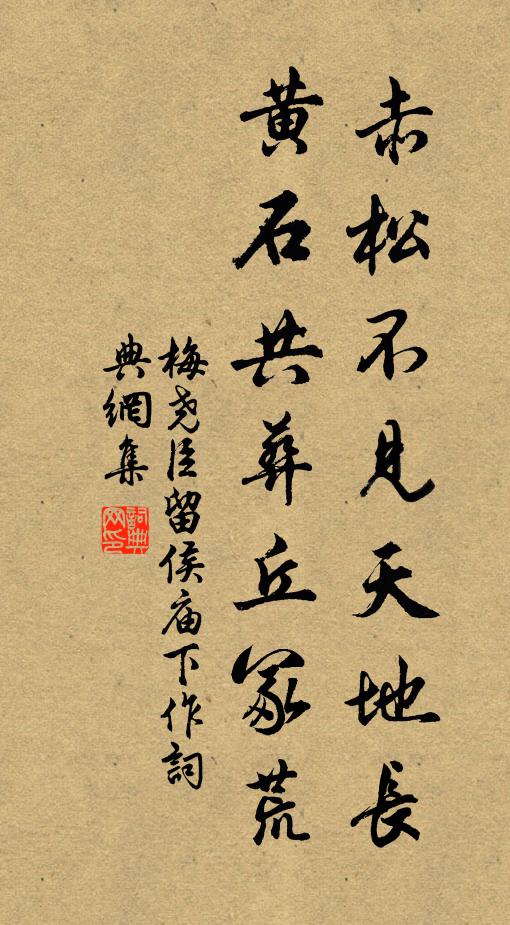 赤松不見天地長
黃石共葬丘冢荒
梅尧臣留侯庙下作詞
典網集
詞典
网印